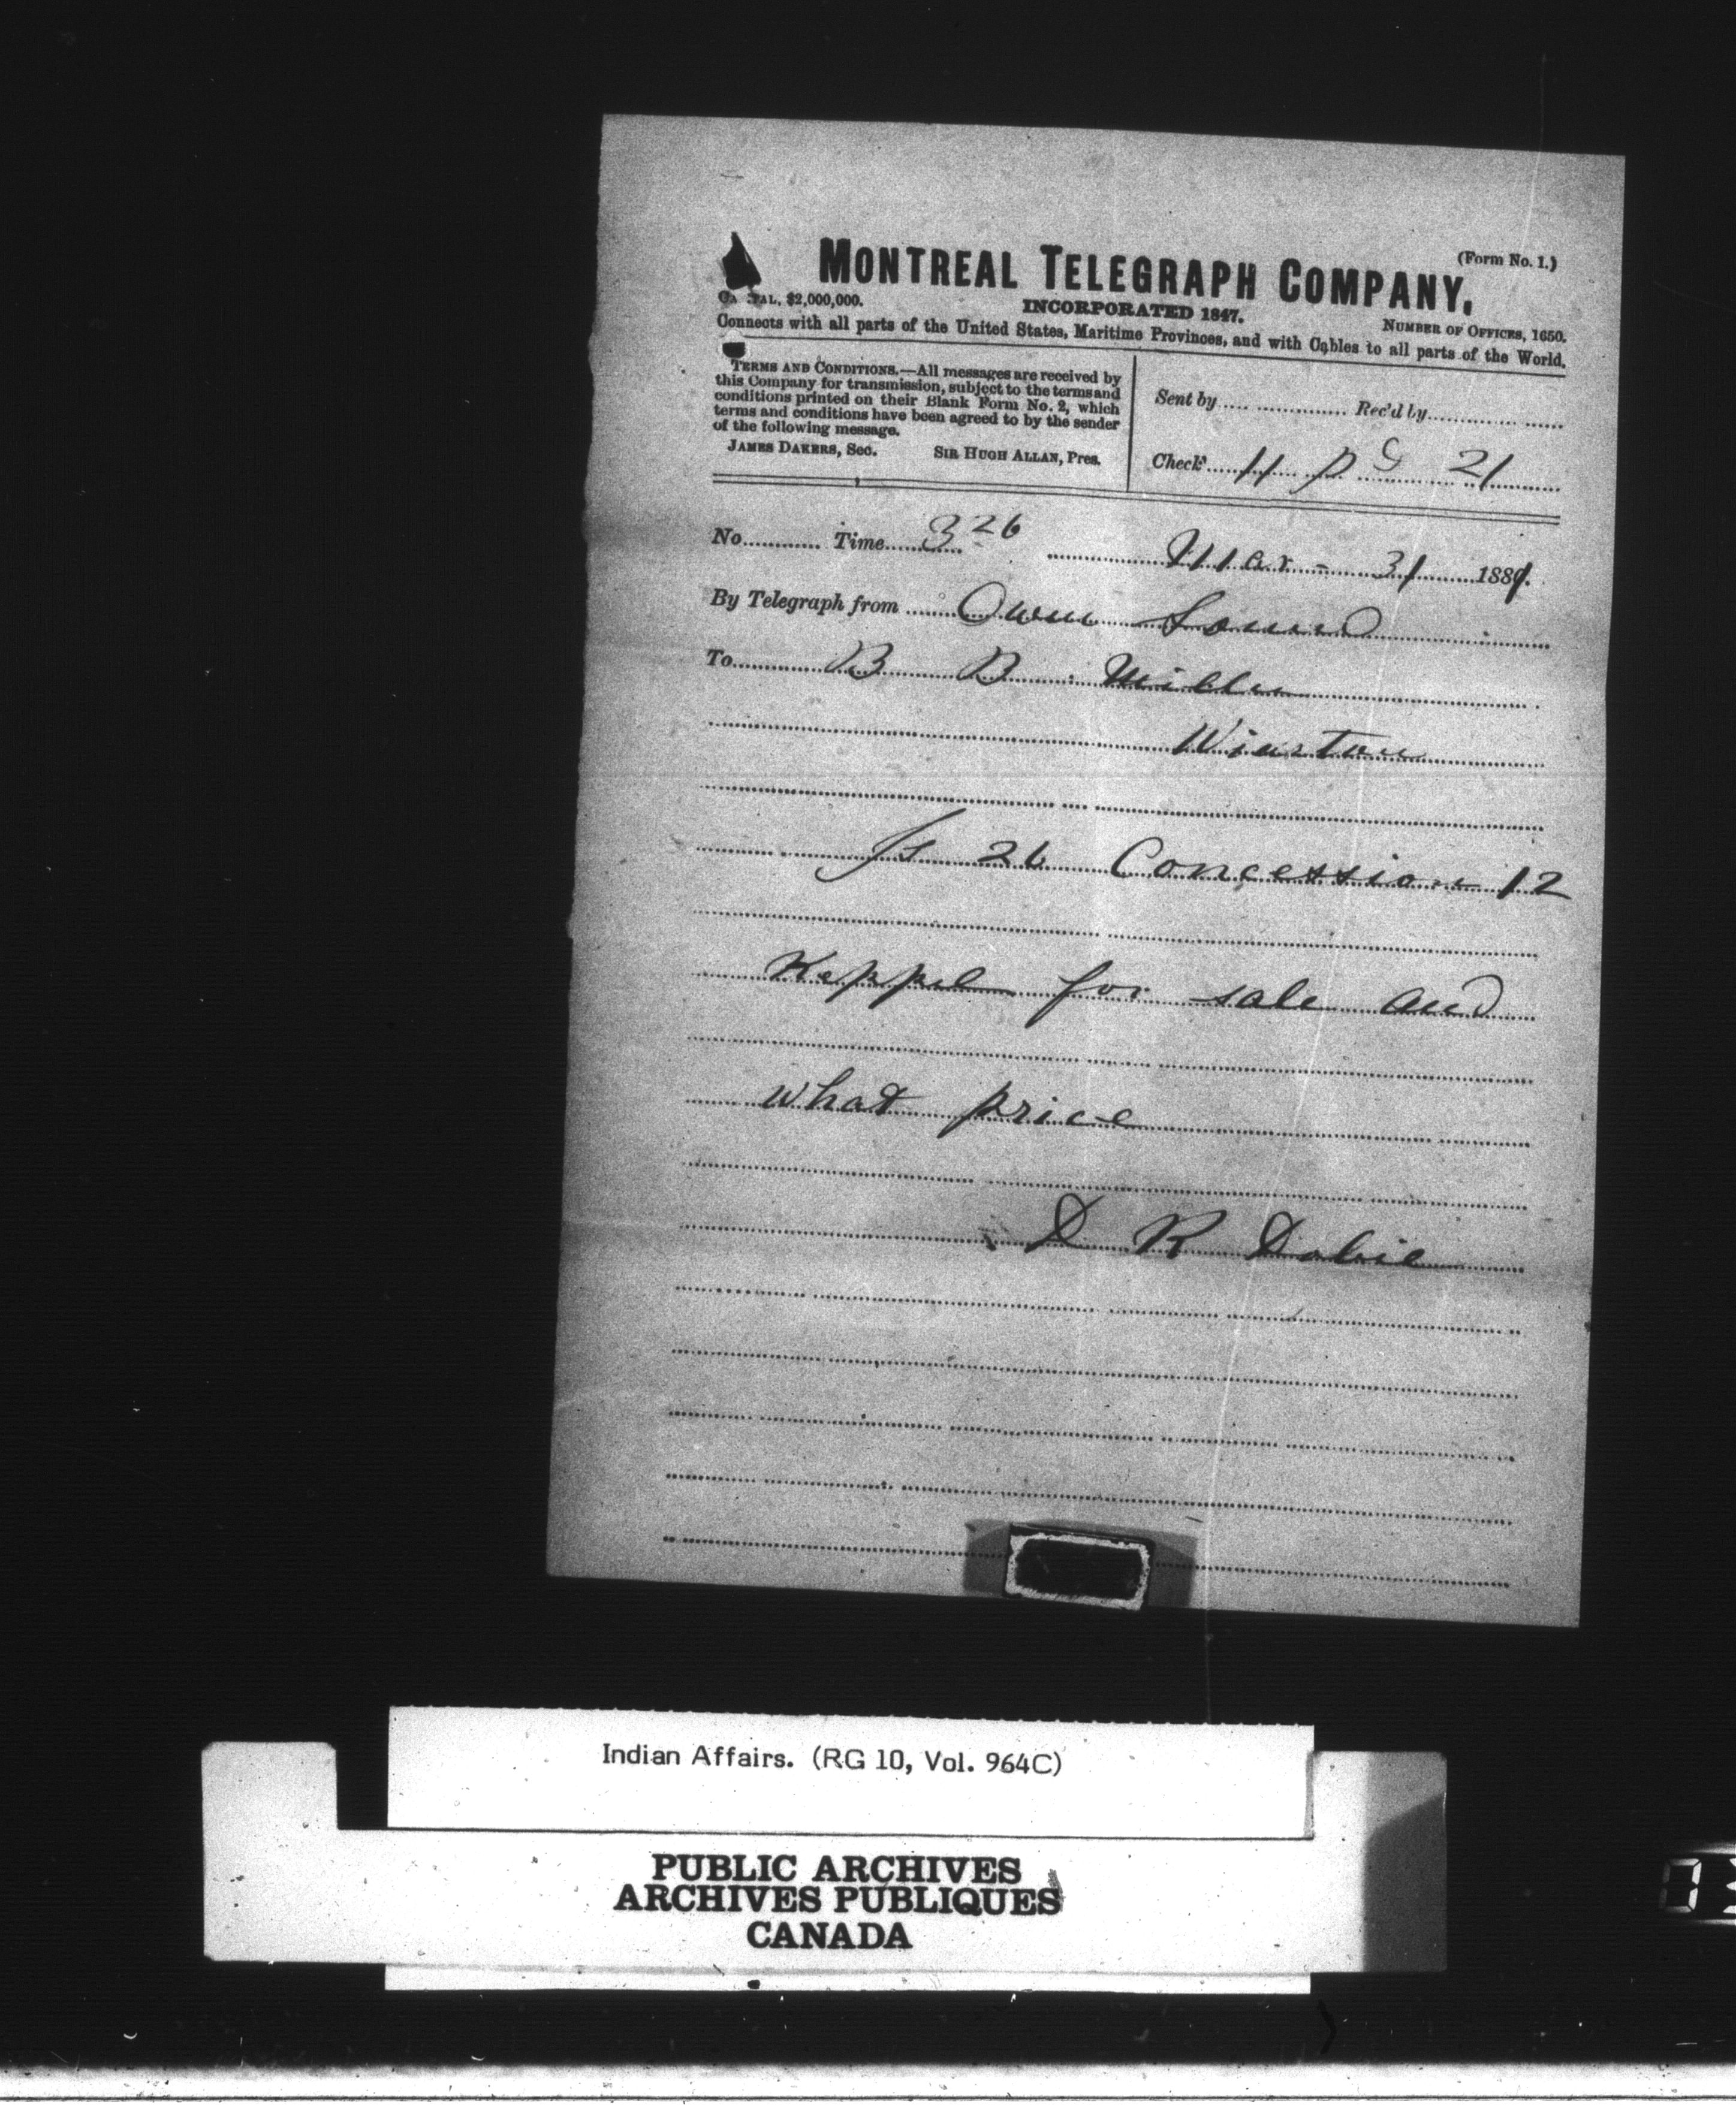 (Form No. 1.)
MONTREAL TELEGRAPH COMPANY,
INCORPORATED 1847.
$2,000,000.
NUMBER OF OFFICES, 1650.
Connects with all parts of the United States, Maritime Provinces, and with Cables to all parts of the World.
TERMS AND CONDITIONS.—All messages are received by
this Company for transmission, subject to the terms and
conditions printed on their Blank Form No. 2, which
terms and conditions have been agreed to by the sender
of the following message.
JAMES DAKERS, Sec. SIR HUGH ALLAN, Pres.
Sent by Rec'd by
Check 11 p G 21
No Time 3 26
Mar - 31 1881.
By Telegraph from Owen Sound
To B B Miller
Wiarton
Is 26 Concession 12
Keppel for sale and
what price
D R Dobie
Indian Affairs. (RG 10, Vol. 964C)
PUBLIC ARCHIVES
ARCHIVES PUBLIQUES
CANADA